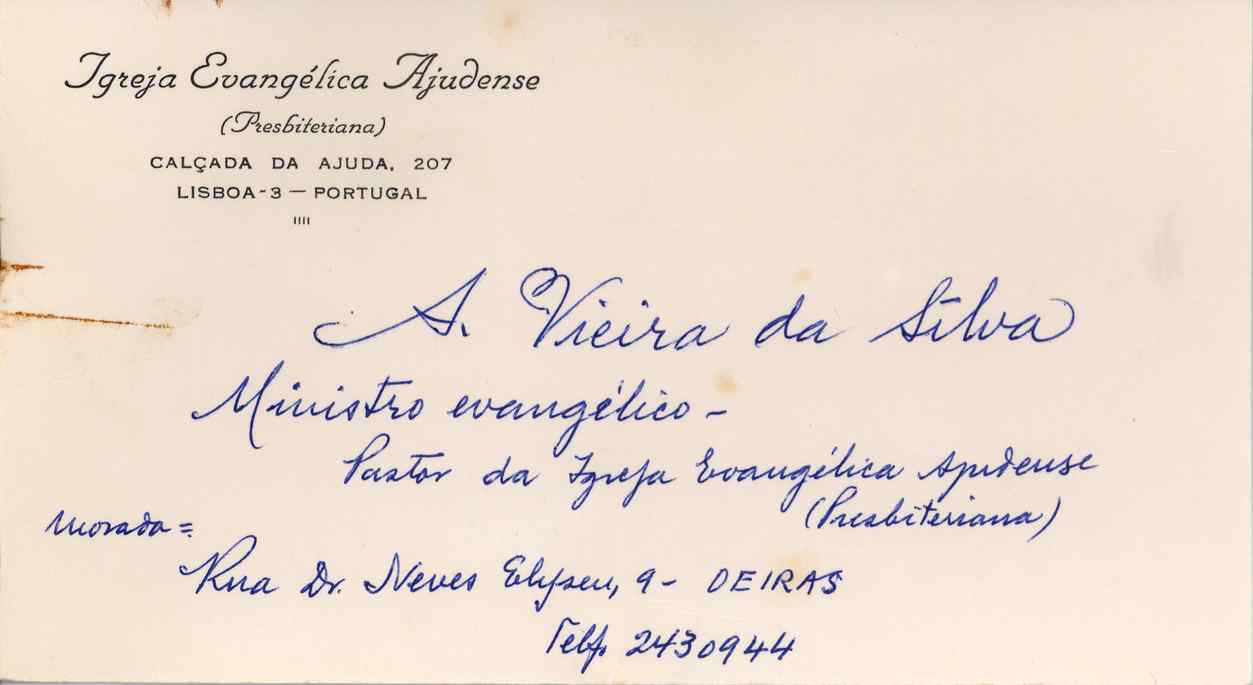 Igreja Evangélica Ajudense
(Presbiteriana)
CALÇADA DA AJUDA, 207
LISBOA-3 — PORTUGAL
A. Vieira da Silva
Ministro evangélico -
Pastor da Igreja Evangélica Ajudense
(Presbiteriana)
Morada =
Rua Dr. Neves Elyseu, 9 - OEIRAS
Telf. 2430944